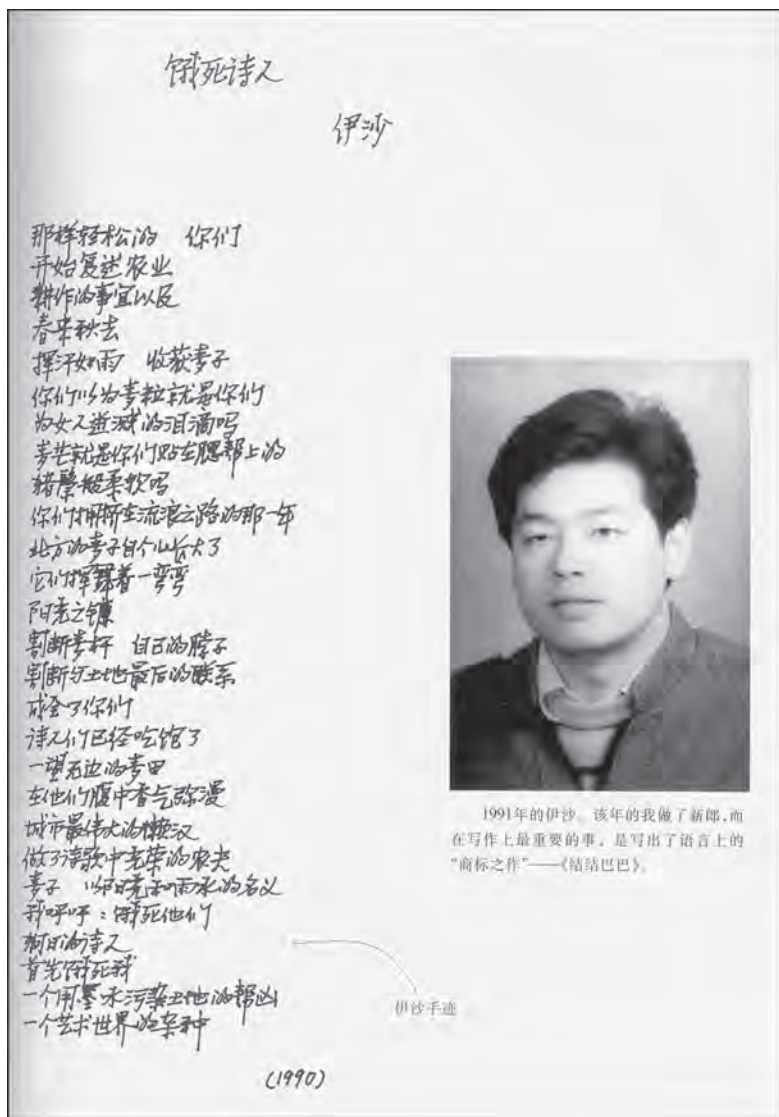 饿死诗人
伊沙
那样轻松的 你们
开始复述农业
耕作的事宜以及
春来秋去
挥汗如雨 收获麦子
你们以为麦粒就是你们
为女人迸溅的泪滴吗
麦芒就是你们贴在腮帮上的
猪鬃般柔软吗
你们拥挤在流浪之路的那一年
北方的麦子自个儿长大了
它们挥舞着一弯弯
阳光之镰
割断麦秆 自己的脖子
割断与土地最后的联系
成全了你们
诗人们已经吃饱了
一望无边的麦田
在他们腹中香气弥漫
城市最伟大的懒汉
做了诗歌中光荣的农夫
麦子 以阳光和雨水的名义
我呼吁：饿死他们
狗日的诗人
首先饿死我
一个用墨水污染土地的帮凶
一个艺术世界的杂种
(1990)
1991年的伊沙。该年的我做了新郎，而
在写作上最重要的事，是写出了语言上的
“商标之作”——《结结巴巴》。
伊沙手迹